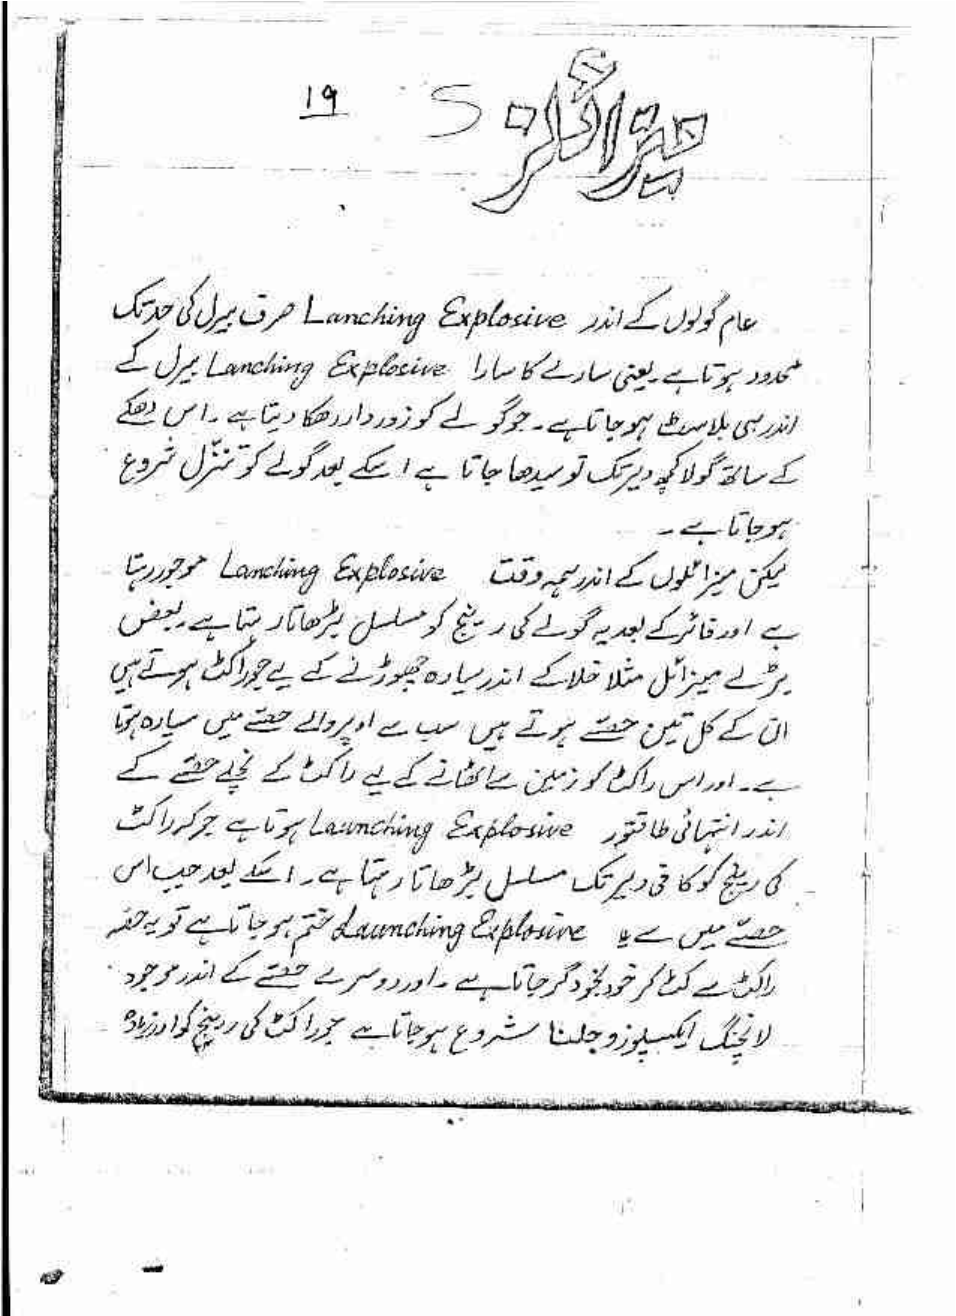 19
میزائلز
عام گولوں کے اندر Lanching Explosive صرف بیرل کی حد تک
محدود ہوتا ہے۔ یعنی سارے کا سارا Lanching Explosive بیرل کے
اندر ہی بلاسٹ ہو جاتا ہے۔ جو گولے کو زوردار دھکا دیتا ہے۔ اس دھکے
کے ساتھ گولا کچھ دیر تک تو سیدھا جاتا ہے اسکے بعد گولے کو تنزّل شروع
ہو جاتا ہے۔
لیکن میزائلوں کے اندر ہمہ وقت Lanching Explosive موجود رہتا
ہے اور فائر کے بعد یہ گولے کی رینج کو مسلسل بڑھاتا رہتا ہے۔ بعض
بڑے میزائل مثلا خلا کے اندر سیارہ چھوڑنے کے لیے جو راکٹ ہوتے ہیں
ان کے کل تین حصّے ہوتے ہیں سب سے اوپر والے حصّے میں سیارہ ہوتا
ہے۔ اور اس راکٹ کو زمین سے اٹھانے کے لیے راکٹ کے نچلے حصّے کے
اندر انتہائی طاقتور Launching Explosive ہوتا ہے جو کہ راکٹ
کی رینج کو کافی دیر تک مسلسل بڑھاتا رہتا ہے۔ اسکے بعد جب اس
حصّے میں سے یا Launching Explosive ختم ہو جاتا ہے تو یہ حصہ
راکٹ سے کٹ کر خود بخود گر جاتا ہے۔ اور دوسرے حصّے کے اندر موجود
لانچنگ ایکسپلوزو جلنا شروع ہو جاتا ہے جو راکٹ کی رینج کو اور زیادہ